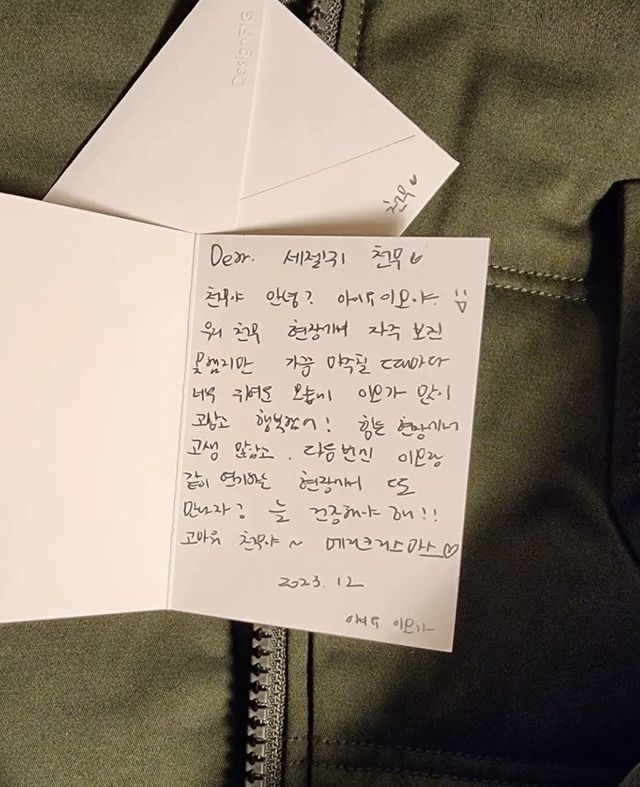 DesignFIG
천무♡
Dear. 세젤귀 천무♡
천무야 안녕? 아이유 이모야 :)
우리 천무 현장에서 자주 보진
못했지만 가끔 마주칠 때마다
너무 귀여운 모습에 이모가 많이
고맙고 행복했어! 힘든 현장에서
고생 많았고, 다음번엔 이모랑
같이 연기하는 현장에서 또
만나자? 늘 건강해야 해!!
고마워 천무야~ 메리크리스마스♡
2023. 12
아이유 이모가